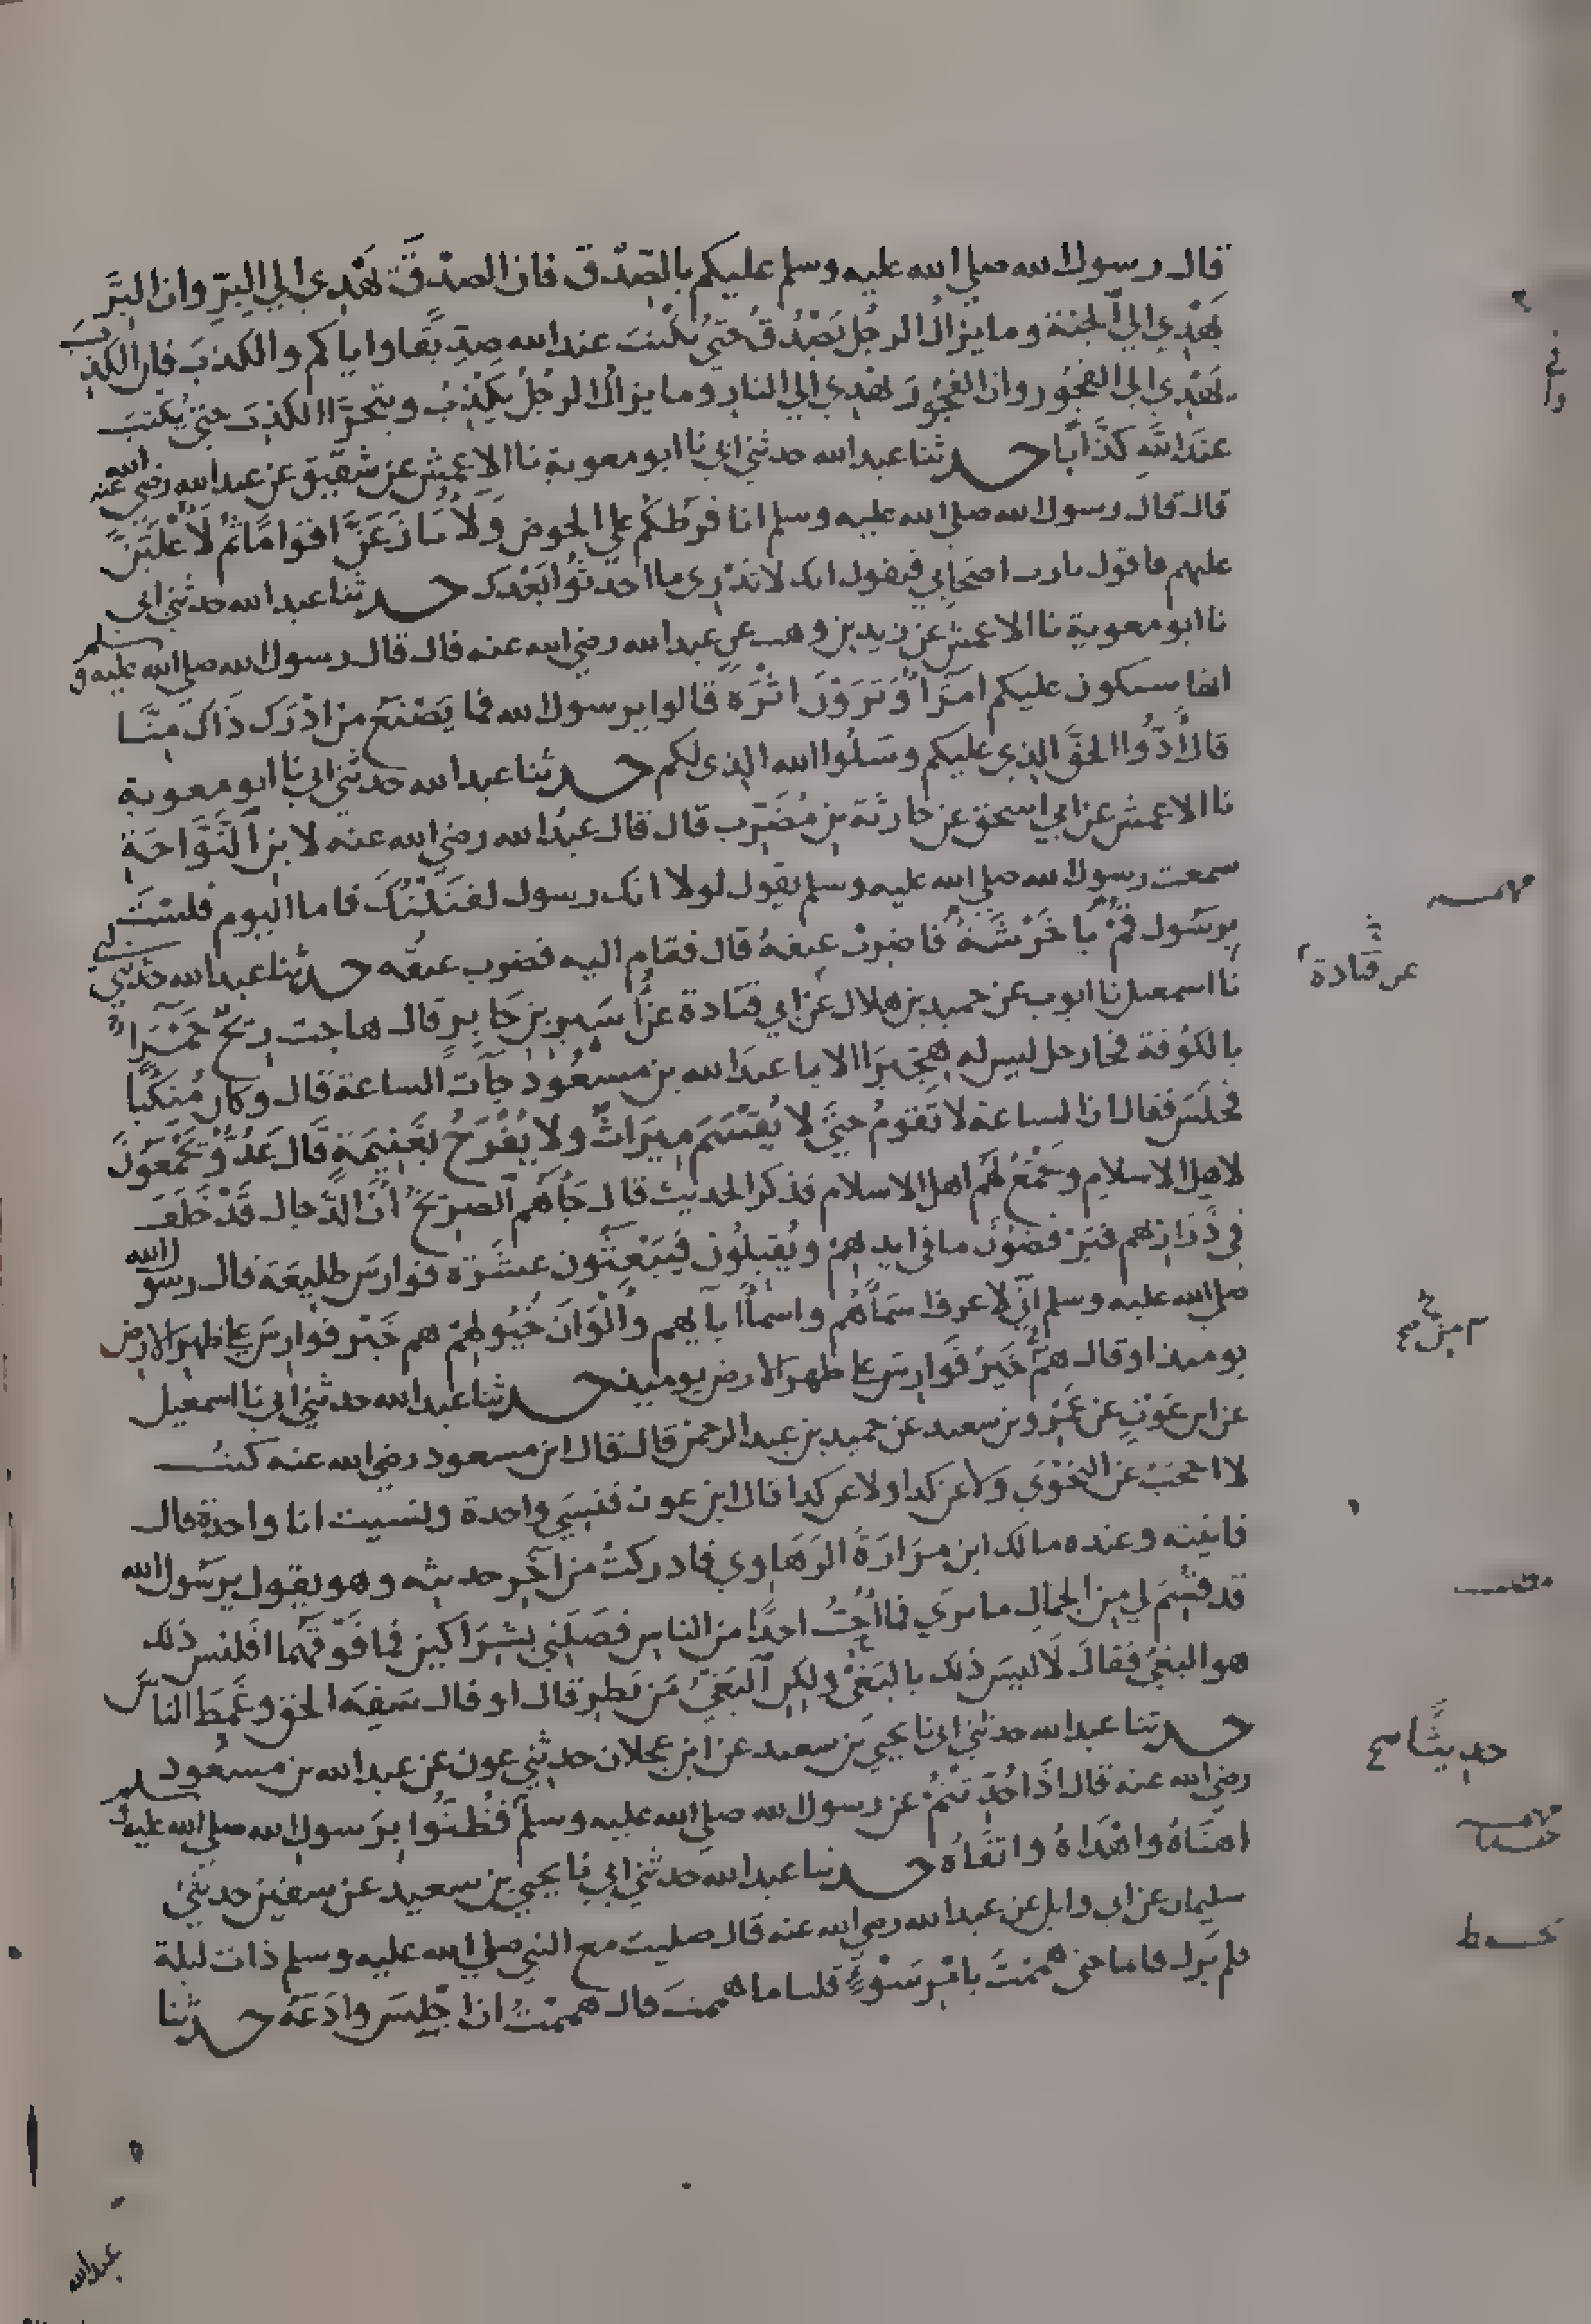 قال رسول الله صلي الله عليه وسلم عليكم بالصِّدْق فان الصدق يَهْدِي الي البِرِّ وان البِرَّ
يَهْدِي الي الجنة وما يزال الرجُل يَصْدُقُ حتي يُكْتبَ عند الله صِدِّيقًا واياكم والكذبَ فان الكذب
يَهْدِي الي الفجُور وان الفجُورَ يَهْدِي الي النار وما يزال الرجُلُ يكْذِبُ ويتحرَّا الكذبَ حتي يُكْتبَ
عندَ اللهِ كذَّابًا حدثنا عبد الله حدثني ابي نا ابو معوية نا الاعمش عن شقيق عن عبد الله رضي الله عنه
قال قال رسول الله صلي الله عليه وسلم انا فَرَطكُم علي الحوض وَلَأُنازَعَنَّ اقوامًا ثُم لَأُغْلَبَنَّ
عليهم فاقول يا رب اصحَابي فيقول انك لا تَدْرِي ما احدَثُوا بَعْدَك حدثنا عبد الله حدثني ابي
نا ابو معوية نا الاعمش عن زيد بن وهب عن عبد الله رضي الله عنه قال قال رسول الله صلي الله عليه وسلم
انها ستكون عليكم امَرَاُ وَتَرَوْنَ اثْرَةً قالوا يرسول الله فما يَصْنَع من ادْرَك ذَاك مِنَّا
قال أَدُّوا الحقَّ الذِي عليكم وسَلُوا الله الذي لكم حدثنا عبد الله حدثني ابي نا ابو معوية
نا الاعمش عن ابي اسحق عن حارثة بن مُضَرِّب قال قال عبدُ الله رضي الله عنه لابن النَّوَّاحَةِ
سمعت رسول الله صلي الله عليه وسلم يقول لولا انك رسول لقتَلْتُكَ فاما اليوم فلسْتَ
برسُول قُمْ يا خَرَشَةُ فاضرِبْ عنقهُ قال فقام اليه فضرب عنقُه حدثنا عبد الله حدثني ابي
نا اسمعيل نا ايوب عن حميد بن هلال عن ابي قتادة عن أُسَيرِ بن جَابِرٍ قال هاجت رِيحٌ حَمْرَاُ
بالكُوفة فجا رجل ليس له هِجِّيرَا الا يا عبدَ الله بن مسْعُود جآت الساعة قال وكان مُتكيًا
فجلَسَ فقال ان الساعة لا تقومُ حتَّي لا يُقتَسَمَ مِيرَاثٌ ولا يُفْرَحُ بغَنِيمَةٍ قَال عَدُوٌّ يَجْمعُونَ
لاهل الاسلام ويَجْمَعُ لهم اهل الاسلام فذكر الحديث قال جَآهُم الصرِيخُ انَّ الدَّجال قدْ خَلَفَ
في ذَرَارِيهم فيَرْفضُونَ ما في ايديهمْ ويُقْبِلُونَ فيَبْعثُون عشَرَة فوارسَ طلِيعَة قال رسول الله
صلي الله عليه وسلم اني لاعرف اسْمآهُم واسمآَ ابآيهم وأَلْوَانَ خُيُولهمْ هم خَيْر فوارِسَ علي ظهر الارض
يوميذ او قال هُمْ خَيرُ فَوَارِسَ علي ظهر الارض يوميذ حدثنا عبد الله حدثني ابي نا اسمعيل
عن ابن عَوْنٍ عن عَمْرو بن سعيد عن حميد بن عبد الرحمن قال قال ابن مسعود رضي الله عنه كنتُ
لا احجَبُ عن النجْوَي وَلا عن كذا ولا عن كذا قال ابن عون فنسِيَ واحدة ونسيت انا واحدة قال
فاتيته وعنده مالك ابن مرَارَةَ الرَهَاوي فادركتُ من آخر حديثه وهو يقول يرسُول الله
قد قُسِمَ لي من الجمالِ ما تري فما أُحِبُّ احدًا من الناسِ فَضَلَنِي بشِرَاكينِ فما فَوْقَهُما افلَيس ذلك
هو البغيُ فقال لا ليسَ ذلك بالبَغْيِ ولكن البَغيُ مَن بَطِرَ قال او قال سَفِهَ الحق وغَمَطَ الناسَ
حدثنا عبد الله حدثني ابي نا يحيي بن سعيد عن ابن عجلان حدثني عون عن عبد الله بن مسعُود
رضي الله عنه قال اذَا حُدِّثْتُمْ عن رسول الله صلي الله عليه وسلم فظُنُّوا برَسول الله صلي الله عليه وسلم
اهنَاهُ واهْدَاهُ واتقَاهُ حدثنا عبد الله حدثني ابي نا يحيي بن سعيد عن سفين حدثني
سليمان عن ابي وايل عن عبد الله رضي الله عنه قال صليت مع النبي صلي الله عليه وسلم ذات ليلة
فلم يَزل قايما حتي هَمَمْتُ بامْرِ سَوْءٍ قلنا ما هممتَ قال هممْتُ ان اجْلِسَ وادَعَهُ حدثنا
عن قتادة
حديثًا سمع
عبد الله